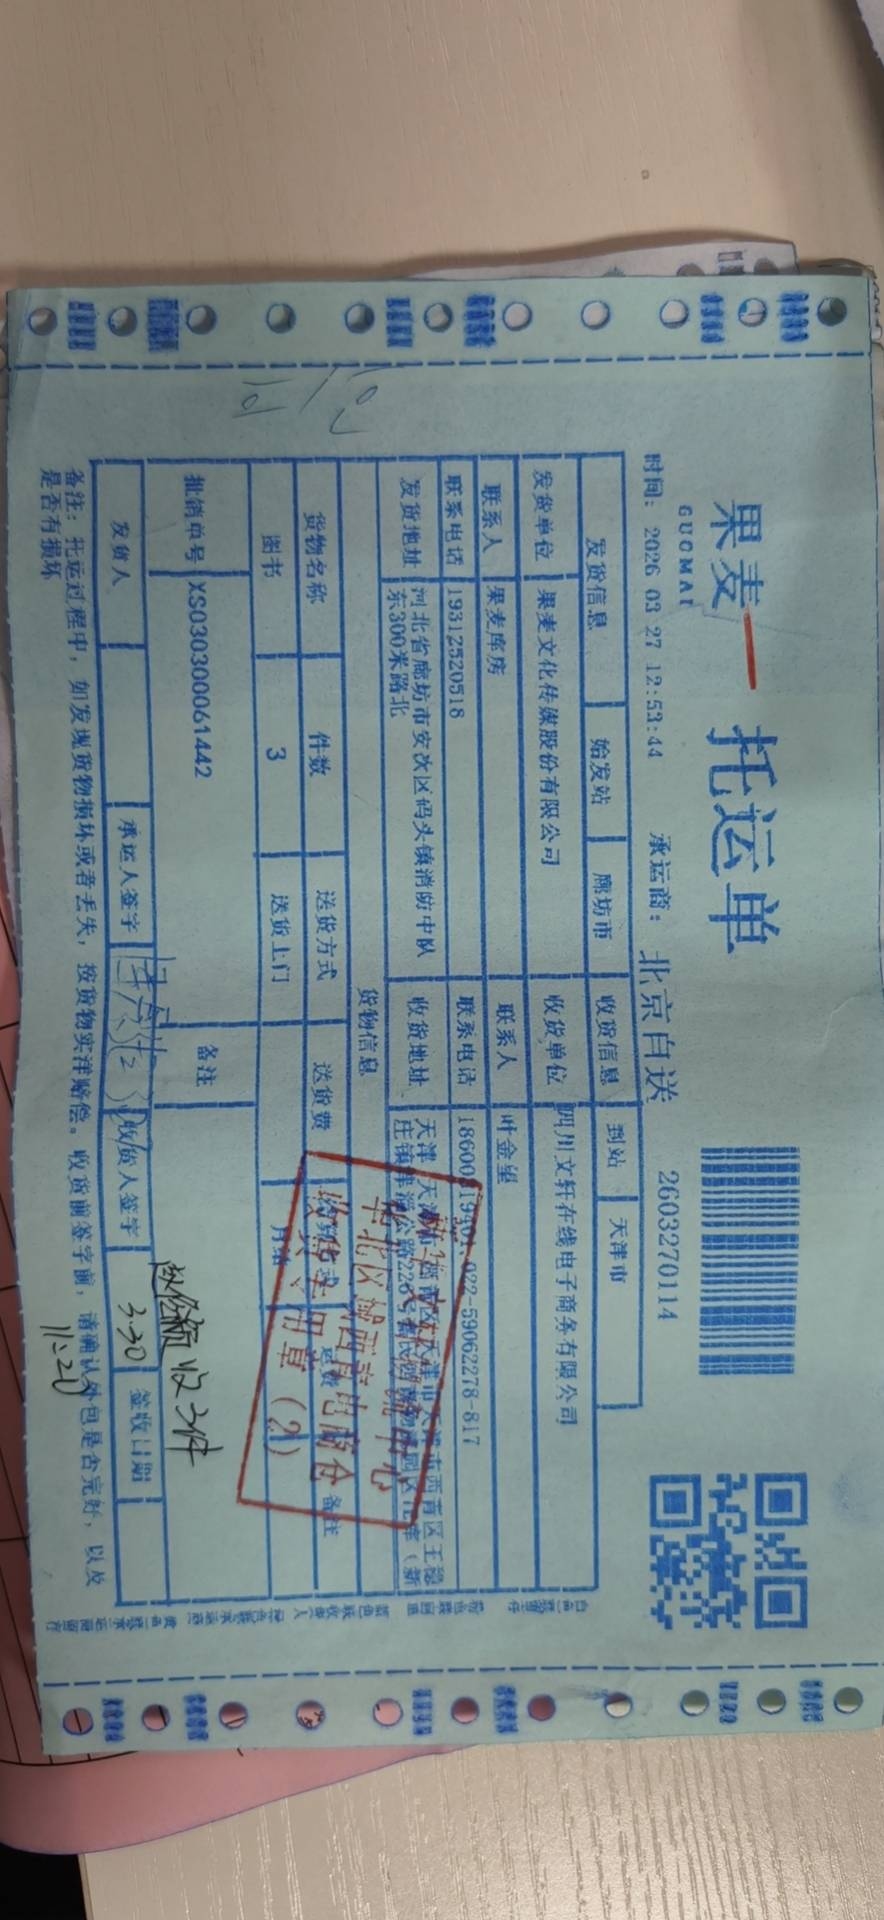 果麦
GUOMAI
托运单
时间：2026 03 27 12:53:44
承运商：北京自送
2603270114
发货信息 始发站 廊坊市 收货信息 到站 天津市
发货单位 果麦文化传媒股份有限公司 收货单位 四川文轩在线电子商务有限公司
联系人 果麦库房 联系人 叶金望
联系电话 19312520518 联系电话 022-59062278-817
发货地址 河北省廊坊市安次区码头镇消防中队东300米路北 收货地址
货物信息
货物名称 件数 送货方式 送货费 备注
图书 3 送货上门 月结
批销单号 XS030300061442 备注
收3件
发货人 承运人签字 收货人签字 3.30 签收日期
11:20
备注：托运过程中，如发现货物损坏或者丢失，按货物实洋赔偿。收货前签字前，请确认外包是否完好，以及
是否有损坏